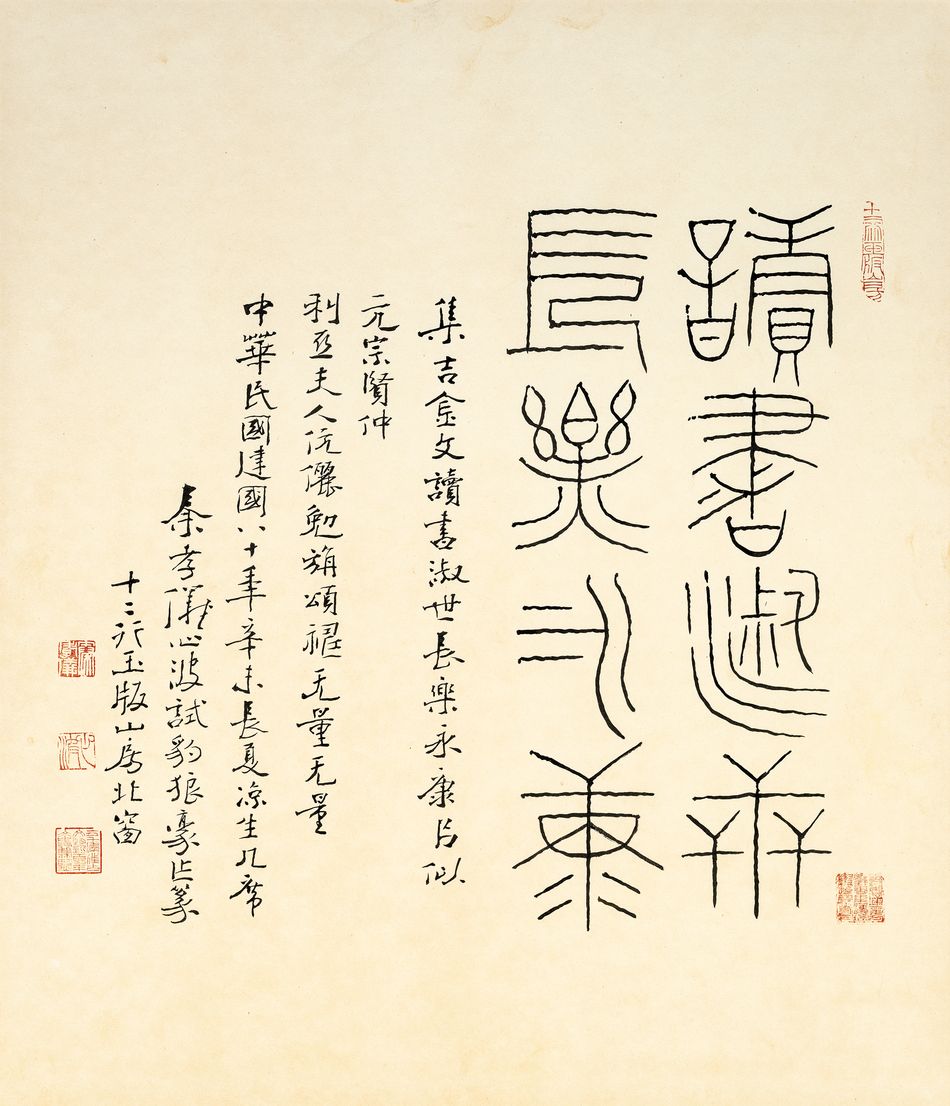 讀書淑世
長樂永康
集吉金文讀書淑世長樂永康以似
元宗賢仲
利亞夫人伉儷勉旃頌禱无量无量
中華民國建國八十年辛未長夏涼生几席
秦孝儀心波試豹狼豪作篆
十二行玉版山房北窗